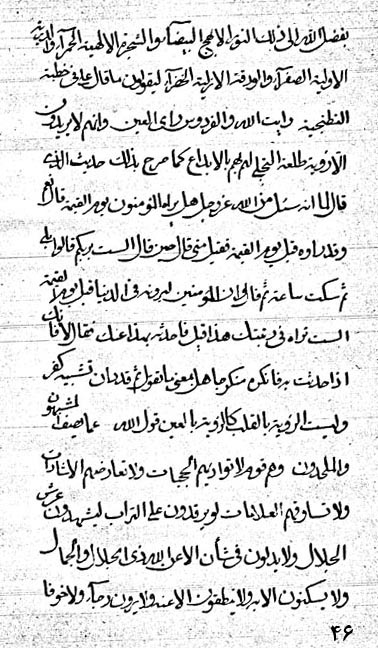 بفضل الله الى ذلك النور الابهج البيضاء والشجرة الالهية الحمرآء والدرة
الاولية الصفرآء والورقة الازلية الخضرآء ليقولون ما قال علي في خطبة
التطنجية رايت الله والفردوس راى العين وانهم لا يريدون
الا رؤية طلعة التجلي لهم بهم بالابداع كما صرح بذلك حديث الذي
قال لما انه سئل من الله عز وجل هل يراه المؤمنون يوم القيمة قال نعم
وقد راوه قبل يوم القيمة فقيل متى قال حين قال الست بربكم قالوا بلى
ثم سكت ساعة ثم قال وان المؤمنين ليرونه في الدنيا قبل يوم القيمة
الست تراه في وقتك هذا قيل فاحدث بهذا عنك فقال لا فانك
اذا حدثت به فانكره منكر جاهل بمعنى ما تقول ثم قدر ان تشبيه كفر
وليست الرؤية بالقلب كالرؤية بالعين قول الله عما يصف المشبهون
والملحدون وهم قوم لا تواريهم الحجبات ولا تعارضهم الاشارات
ولا تساوقهم العلامات لو يرقدون على التراب ليشهدون عرش
الجلال ولا يدلون في شأن الا عن الله ذى الجلال والجمال
ولا يسكنون الا به ولا ينطقون الا عنه ولا يرون رجآء ولا خوفا
۴۶